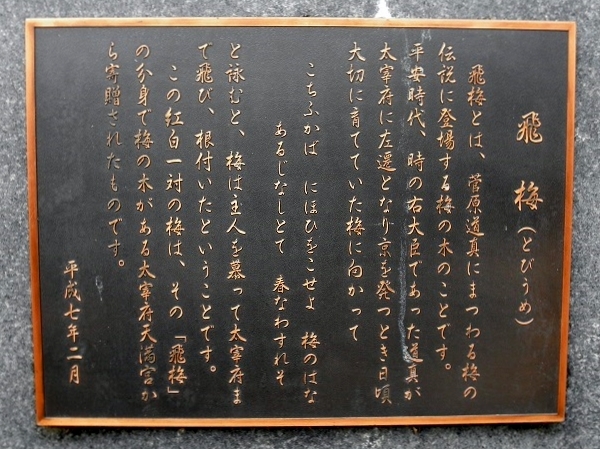 飛梅(とびうめ)
飛梅とは、菅原道真にまつわる梅の
伝説に登場する梅の木のことです。
平安時代、時の右大臣であった道真が
太宰府に左遷となり京を発つとき日頃
大切に育てていた梅に向かって
こちふかば にほひをこせよ 梅のはな
あるじなしとて 春なわすれそ
と詠むと、梅は主人を慕って太宰府ま
で飛び、根付いたということです。
この紅白一対の梅は、その「飛梅」
の分身で梅の木がある太宰府天満宮か
ら寄贈されたものです。
平成七年二月